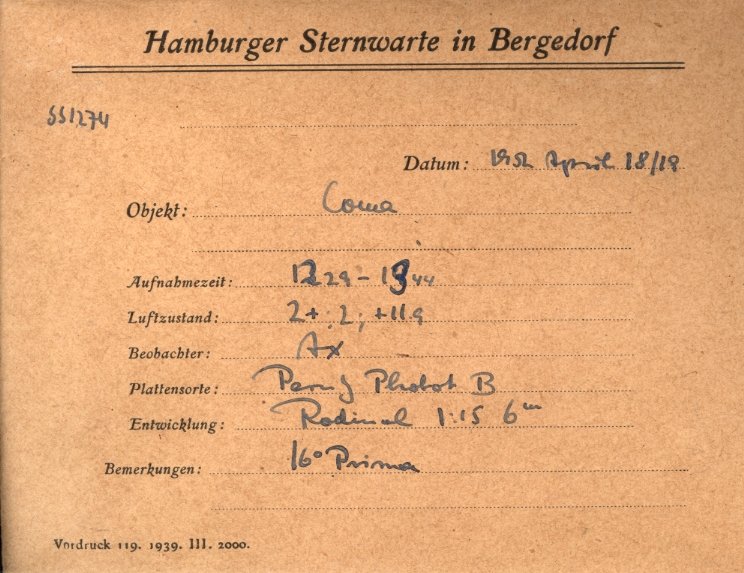 Hamburger Sternwarte in Bergedorf
SS1274
Datum: 1952 April 18/19
Objekt: Coma
Aufnahmezeit: 12 29 - 13 44
Luftzustand: 2+; 2; +11.9
Beobachter: Ax
Plattensorte: Perutz Phbot B
Entwicklung: Rodinal 1:15 6m
Bemerkungen: 16° Prisma
Vordruck 119. 1939. III. 2000.